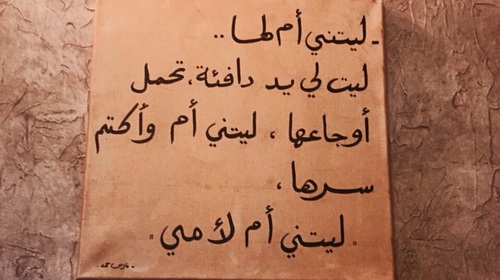 - ليتني أم لها ..
ليت لي يد دافئة، تحمل
أوجاعها، ليتني أم وأكتم
سرها،
" ليتني أم لأمي "